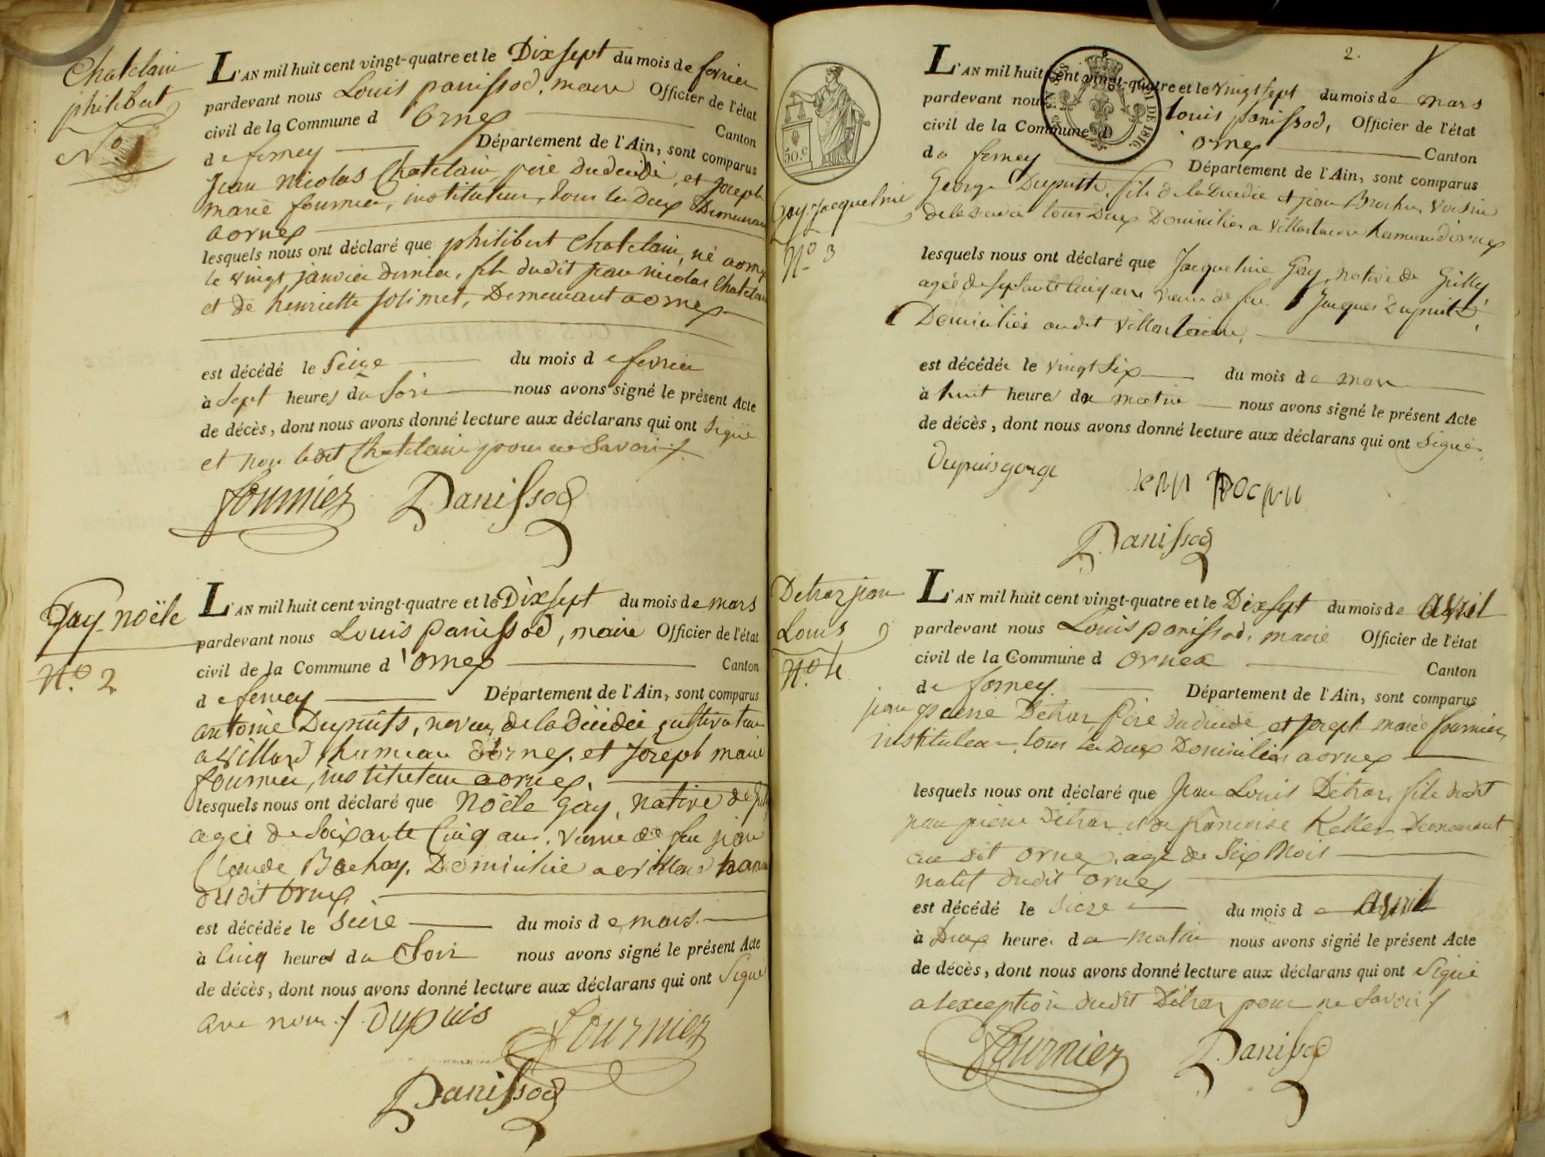 Chatelain
philibert
No. 1
L'AN mil huit cent vingt-quatre et le Dix sept du mois de fevrier
pardevant nous Louis panissod, maire Officier de l'état
civil de la Commune d'Ornex Canton
de ferney Département de l'Ain, sont comparus
Jean Nicolas Chatelain père du décidé, et Joseph
marie fournier, instituteur, tous les Deux Demeurant
a ornex
lesquels nous ont déclaré que philibert Chatelain, né a ornex
le vingt janvier dernier, fils dudit jean nicolas Chatelain
et de henriette Solimet, Demeurant a ornex
est décédé le Seize du mois de fevrier
à Sept heures du Soir nous avons signé le présent Acte
de décès, dont nous avons donné lecture aux déclarans qui ont Signé
et non ledit Chatelain pour ne Savoir
fournier Panissod
Gay noële
No. 2
L'AN mil huit cent vingt-quatre et le Dix sept du mois de mars
pardevant nous Louis panissod, maire Officier de l'état
civil de la Commune d'ornex Canton
de ferney Département de l'Ain, sont comparus
antoine Dupuits, neveu de la décidée, cultivateur
a Villard hameau d'ornex, et Joseph marie
fournier, instituteur a ornex,
lesquels nous ont déclaré que Noële Gay, native de
agée de Soixante Cinq ans, veuve de feu jean
Claude Domiciliée a
dudit Ornex
est décédée le Seize du mois de mars
à Cinq heures du Soir nous avons signé le présent Acte
de décès, dont nous avons donné lecture aux déclarans qui ont Signé
avec nous Dupuis Fournier
Panissod
2.
50.c
DE 1816.
Gay Jacqueline
No. 3
L'AN mil huit cent vingt-quatre et le vingt Sept du mois de mars
pardevant nous Louis panissod, Officier de l'état
civil de la Commune D'ornex Canton
de ferney Département de l'Ain, sont comparus
George Dupuits, fils de la Décidée et jean Brochu, Voisin
de la Décidée tous Deux Domiciliés a hameau d'ornex
lesquels nous ont déclaré que Jacqueline Gay, native de Grilly
agée de Septante Cinq ans veuve de feu Jacques Dupuits,
Domiciliée audit
est décédée le vingt Six du mois de mars
à huit heures du matin nous avons signé le présent Acte
de décès, dont nous avons donné lecture aux déclarans qui ont Signé,
Dupuis gorge
Panissod
Detraz jean
Louis
No. 4
L'AN mil huit cent vingt-quatre et le Dix sept du mois de avril
pardevant nous Louis panissod, maire Officier de l'état
civil de la Commune d Ornex Canton
de ferney. Département de l'Ain, sont comparus
jean pierre Détraz, père du décidé et Joseph marie fournier,
instituteur, tous les Deux Domiciliés a ornex
lesquels nous ont déclaré que Jean Louis Détraz, fils dudit
jean pierre Détraz, et de françoise Keller, Demeurant
au dit ornex, agé de Six Mois
natif dudit ornex
est décédé le Sieze du mois de avril
à Deux heures du matin nous avons signé le présent Acte
de décès, dont nous avons donné lecture aux déclarans qui ont Signé
a lexception dudit Détraz pour ne Savoir
Fournier Panissod